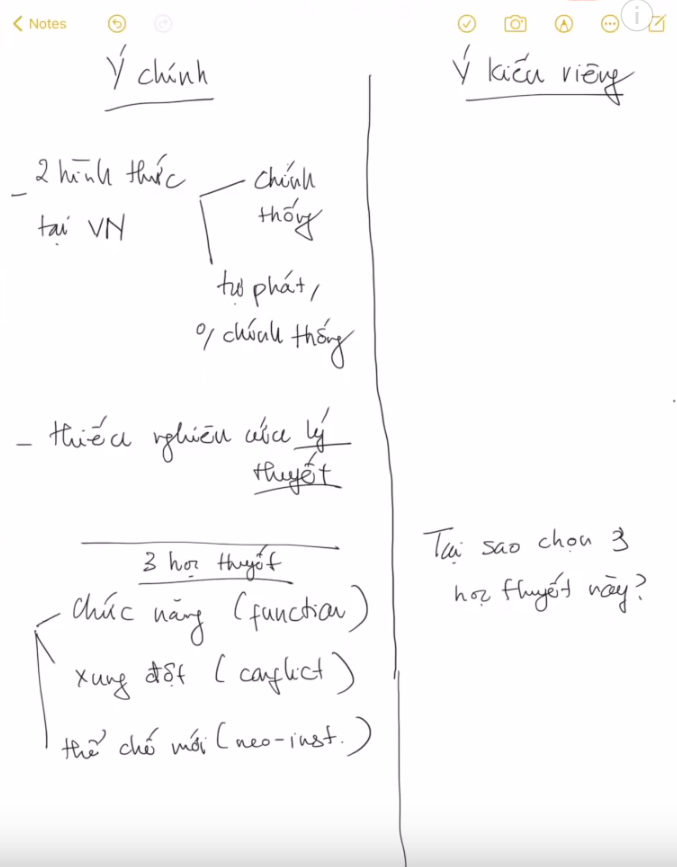 Notes
Ý chính
Ý kiến riêng
- 2 hình thức
tại VN
chính
thống
tự phát,
% chính thống
- thiếu nghiên cứu lý
thuyết
3 học thuyết
chức năng (function)
xung đột (conflict)
thể chế mới (neo-inst.)
Tại sao chọn 3
học thuyết này?